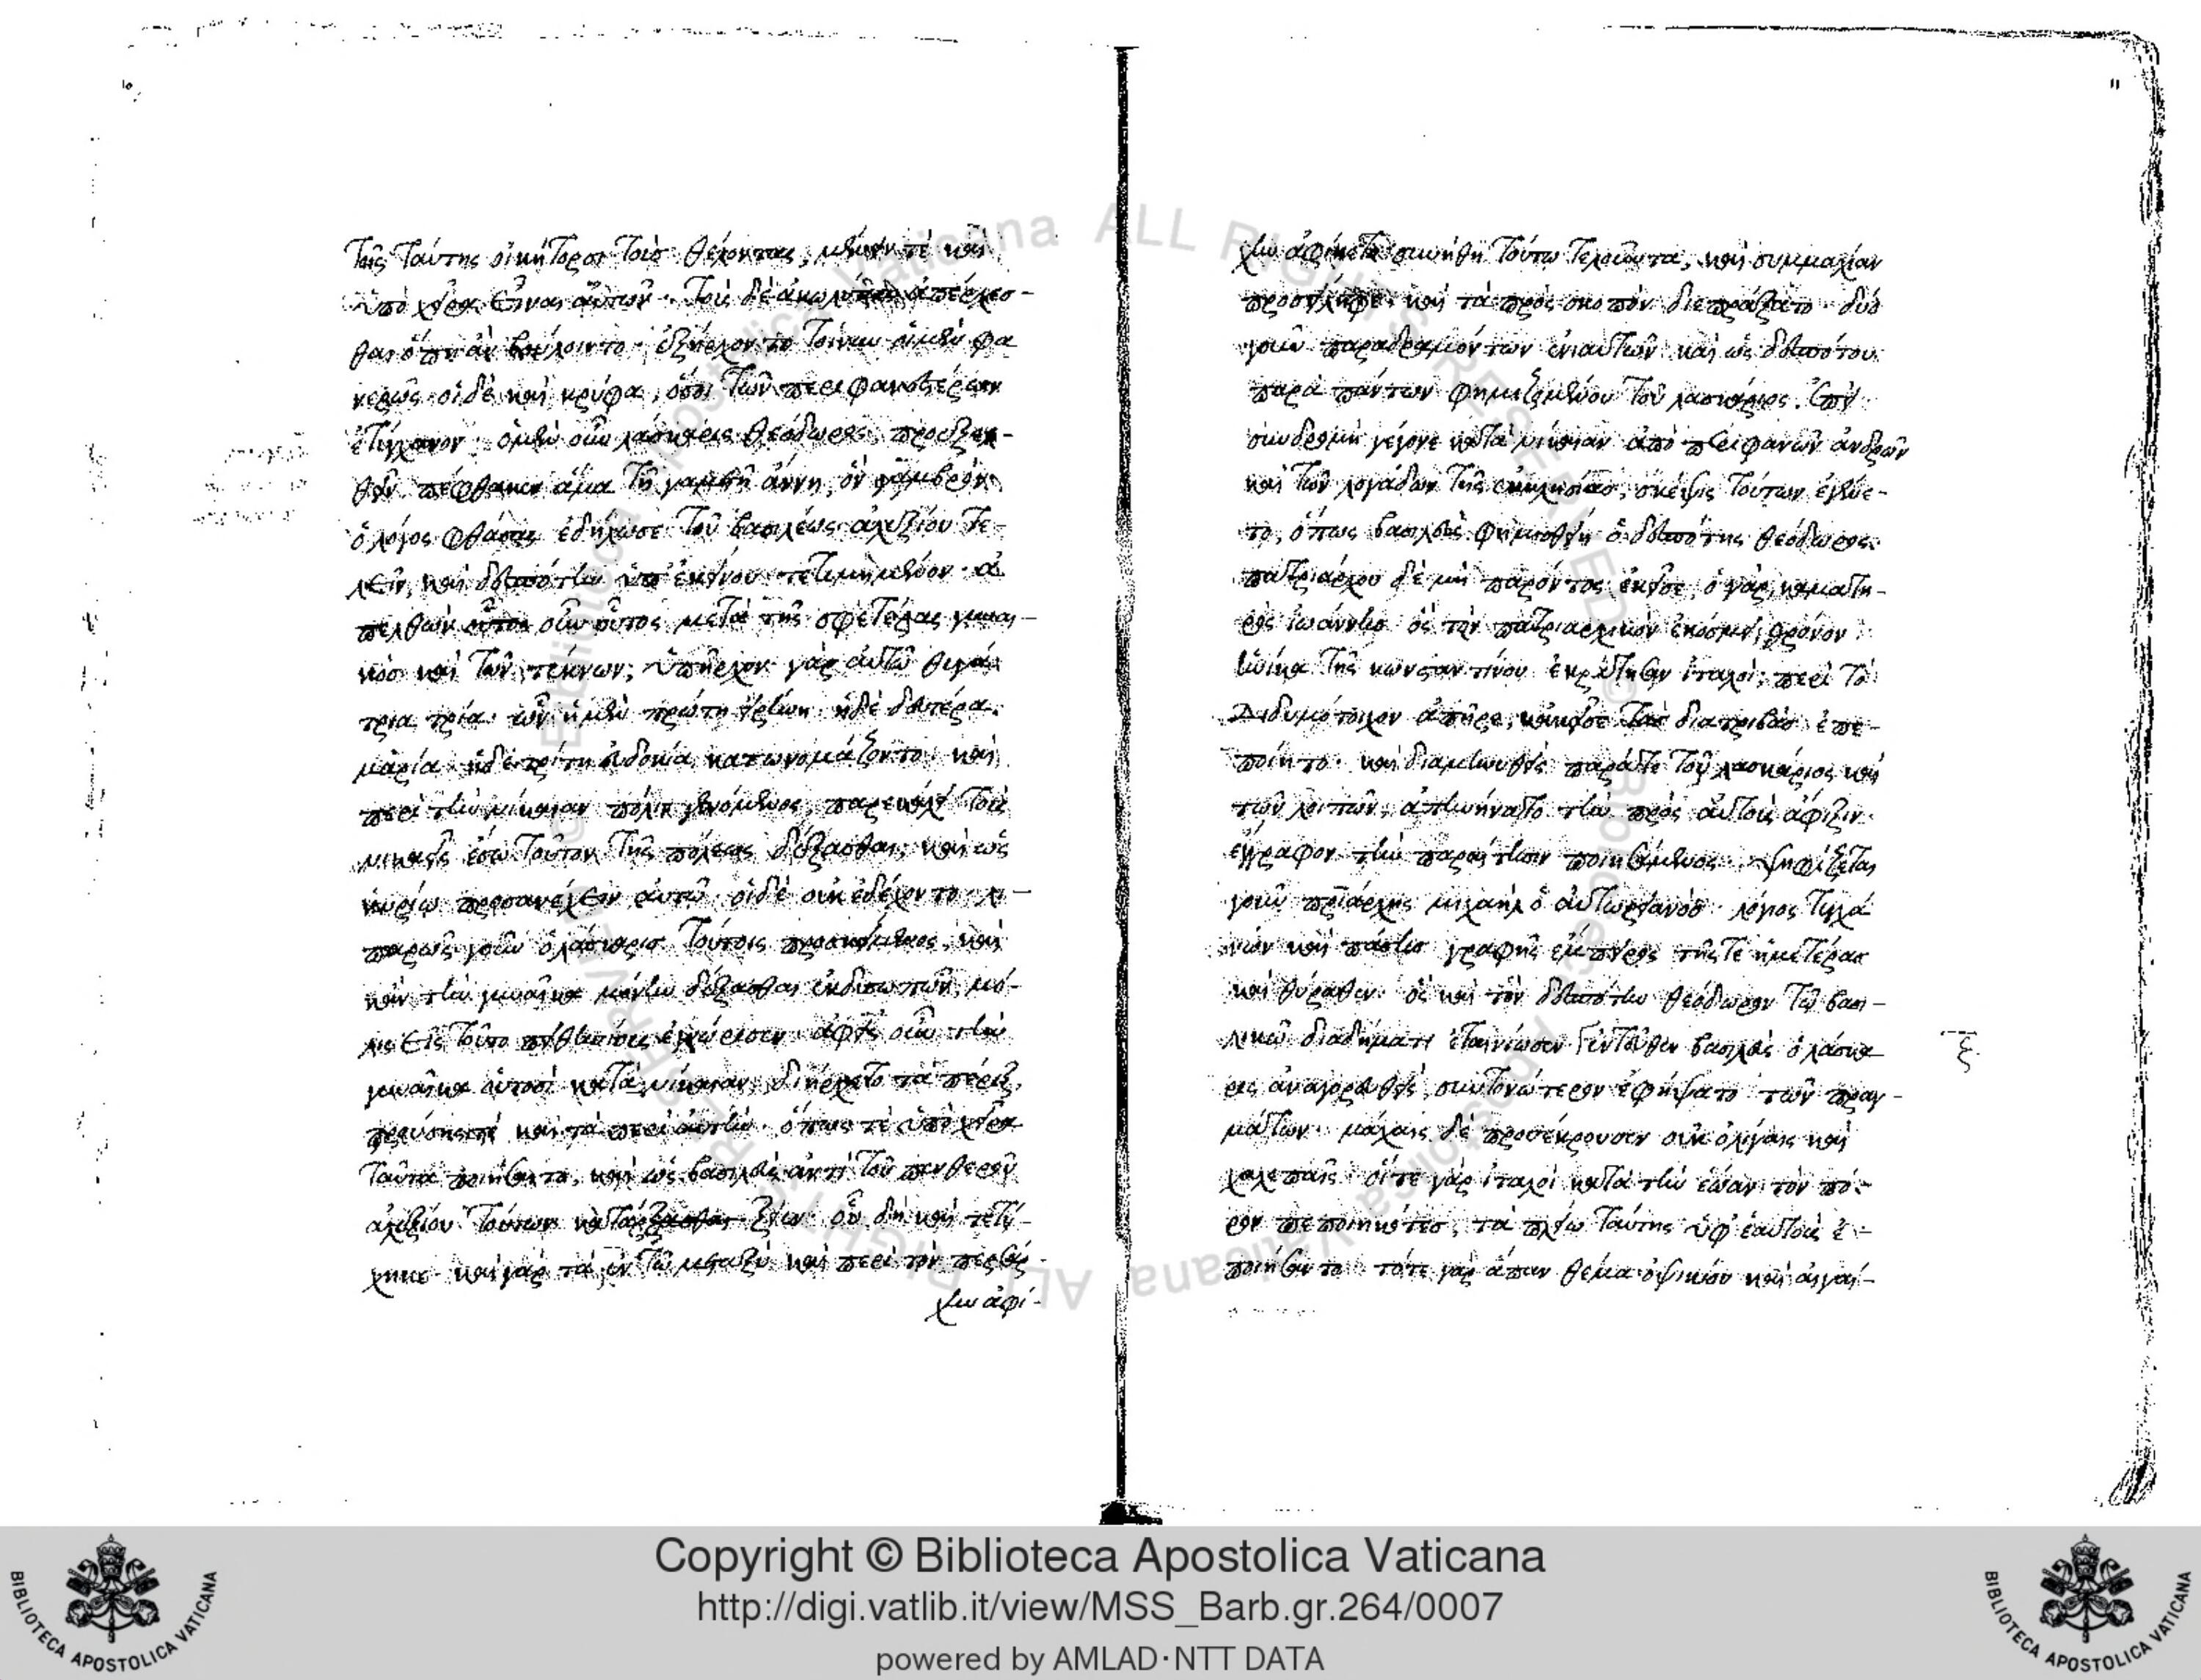 10
τοῖς ταύτης οἰκήτορσι τοὺς θέλοντας, μένειν τὲ καὶ
ὑπὸ χεῖρα εἶναι αὐτῶν. τοὺς δὲ ἀκωλύτως ἀπέρχεσ-
θαι ὅπη ἂν βούλοιντο. ἐξήρχοντο τοίνυν οἱ μὲν φα
νερῶς οἱ δὲ καὶ κρύφα, ὅσοι τῶν περιφανεστέρων
ἐτύγχανον. ὁ μὲν οὖν λάσκαρις θεόδωρος, προεξελ-
θὼν πέφθακεν ἅμα τῇ γαμετῇ ἄννῃ, ὃν γαμβρὸν
ὁ λόγος φθάσας ἐδήλωσε τοῦ βασιλέως ἀλεξίου τε-
λεῖν, καὶ δεσπότην ὑπ' ἐκείνου τετιμημένον. ἀ
πελθὼν οὖν οὗτος μετὰ τῆς σφετέρας γυναι-
κὸς καὶ τῶν τέκνων, ὑπῆρχον γὰρ αὐτῷ θυγά
τρια τρία. ὧν ἡ μὲν πρώτη εἰρήνη ἡ δὲ δευτέρα
μαρία ἡ δὲ τρίτη εὐδοκία κατωνομάζοντο. καὶ
περὶ τὴν νίκαιαν πόλιν γενόμενος, παρεκάλει τοὺς
νικαεῖς ἔσω τοῦτον τῆς πόλεως δέξασθαι, καὶ ὡς
κυρίω προσανέχειν αὐτῷ. οἱ δὲ οὐκ ἐδέχοντο. λι-
παρῶς γοῦν ὁ λάσκαρις τούτοις προσκείμενος, καὶ
κἂν τὴν γυναῖκα μόνην δέξασθαι ἐκδυσωπῶν, μό-
λις εἰς τοῦτο
γυναῖκα οὑτοσὶ κατὰ νίκαιαν, διήρχετο τὰ πέριξ
προύσης τὲ καὶ τὰ περὶ αὐτήν. ὅπως τὲ ὑπὸ χεῖρα
ταῦτα ποιήσαιτο, καὶ ὡς βασιλεὺς ἀντὶ τοῦ πενθεροῦ
ἀλεξίου τούτων
χηκε. καὶ γὰρ τὰ ἐν τῷ μεταξὺ καὶ περὶ τὸν
χην ἀφί-
11
χην ἀφίκετο συνήθη τούτω τελοῦντα, καὶ συμμαχίαν
προσείληφε. καὶ τὰ πρὸς σκοπὸν διεπράξατο. δύο
γοῦν παραδραμόντων ἐνιαυτῶν καὶ ὡς δεσπότου
παρὰ πάντων φημιζομένου τοῦ λασκάριος. ἐπεὶ
συνδρομὴ γέγονε κατὰ νίκαιαν ἀπὸ περιφανῶν ἀνδρῶν
καὶ τῶν λογάδων τῆς ἐκκλησίας, σκέψις τούτων ἐγένε-
το, ὅπως βασιλεὺς φημισθείη ὁ δεσπότης θεόδωρος.
πατριάρχου δὲ μὴ παρόντος ἐκεῖσε, ὁ γὰρ καματη-
ρὸς ἰωάννης ὃς τὸν πατριαρχικὸν ἐκόσμει θρόνον
ἡνίκα τῆς κωνσταντίνου ἐκράτησαν ἰταλοί, περὶ τὸ
Διδυμότοιχον ἀπῆρε, κἀκεῖσε τὰς διατριβὰς ἐπε-
ποίητο. καὶ διαμηνυθεὶς παρά τε τοῦ λασκάριος καὶ
τῶν λοιπῶν, ἀπηνήνατο τὴν πρὸς αὐτοὺς ἄφιξιν.
ἔγγραφον τὴν παραίτησιν ποιησάμενος. ψηφίζεται
γοῦν πριάρχης μιχαὴλ ὁ αὐτωρειανὸς λόγιος τυγχά
νων καὶ πάσης γραφῆς ἔμπειρος τῆς τε ἡμετέρας
καὶ θύραθεν. ὃς καὶ τὸν δεσπότην θεόδωρον τῷ βασι-
λικῷ διαδήματι ἐταινίωσεν ἐντεῦθεν βασιλεὺς ὁ λάσκα
ρις ἀναγορευθεὶς, συντονώτερον ἐφήψατο τῶν πραγ-
μάτων. μάχαις δὲ προσέκρουσεν οὐκ ὀλίγαις καὶ
χαλεπαῖς. οἵ τε γὰρ ἰταλοὶ κατὰ τὴν ἑώαν τὸν πό-
ρον πεποιηκότες, τὰ πλείω ταύτης ὑφ' ἑαυτοὺς ἐ-
ποιήσαντο. τότε γὰρ ἅπαν θέμα ὀψικίου καὶ αἰγαί-
ξ
Copyright © Biblioteca Apostolica Vaticana
http://digi.vatlib.it/view/MSS_Barb.gr.264/0007
powered by AMLAD·NTT DATA
BIBLIOTECA APOSTOLICA VATICANA
BIBLIOTECA APOSTOLICA VATICANA